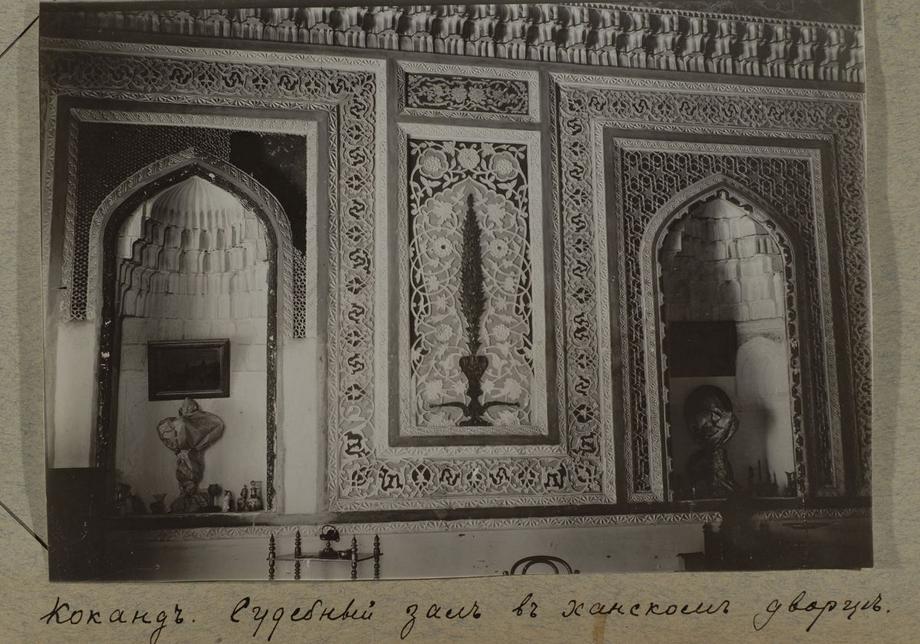 Кокандъ. Судебный залъ въ ханскомъ дворцѣ.